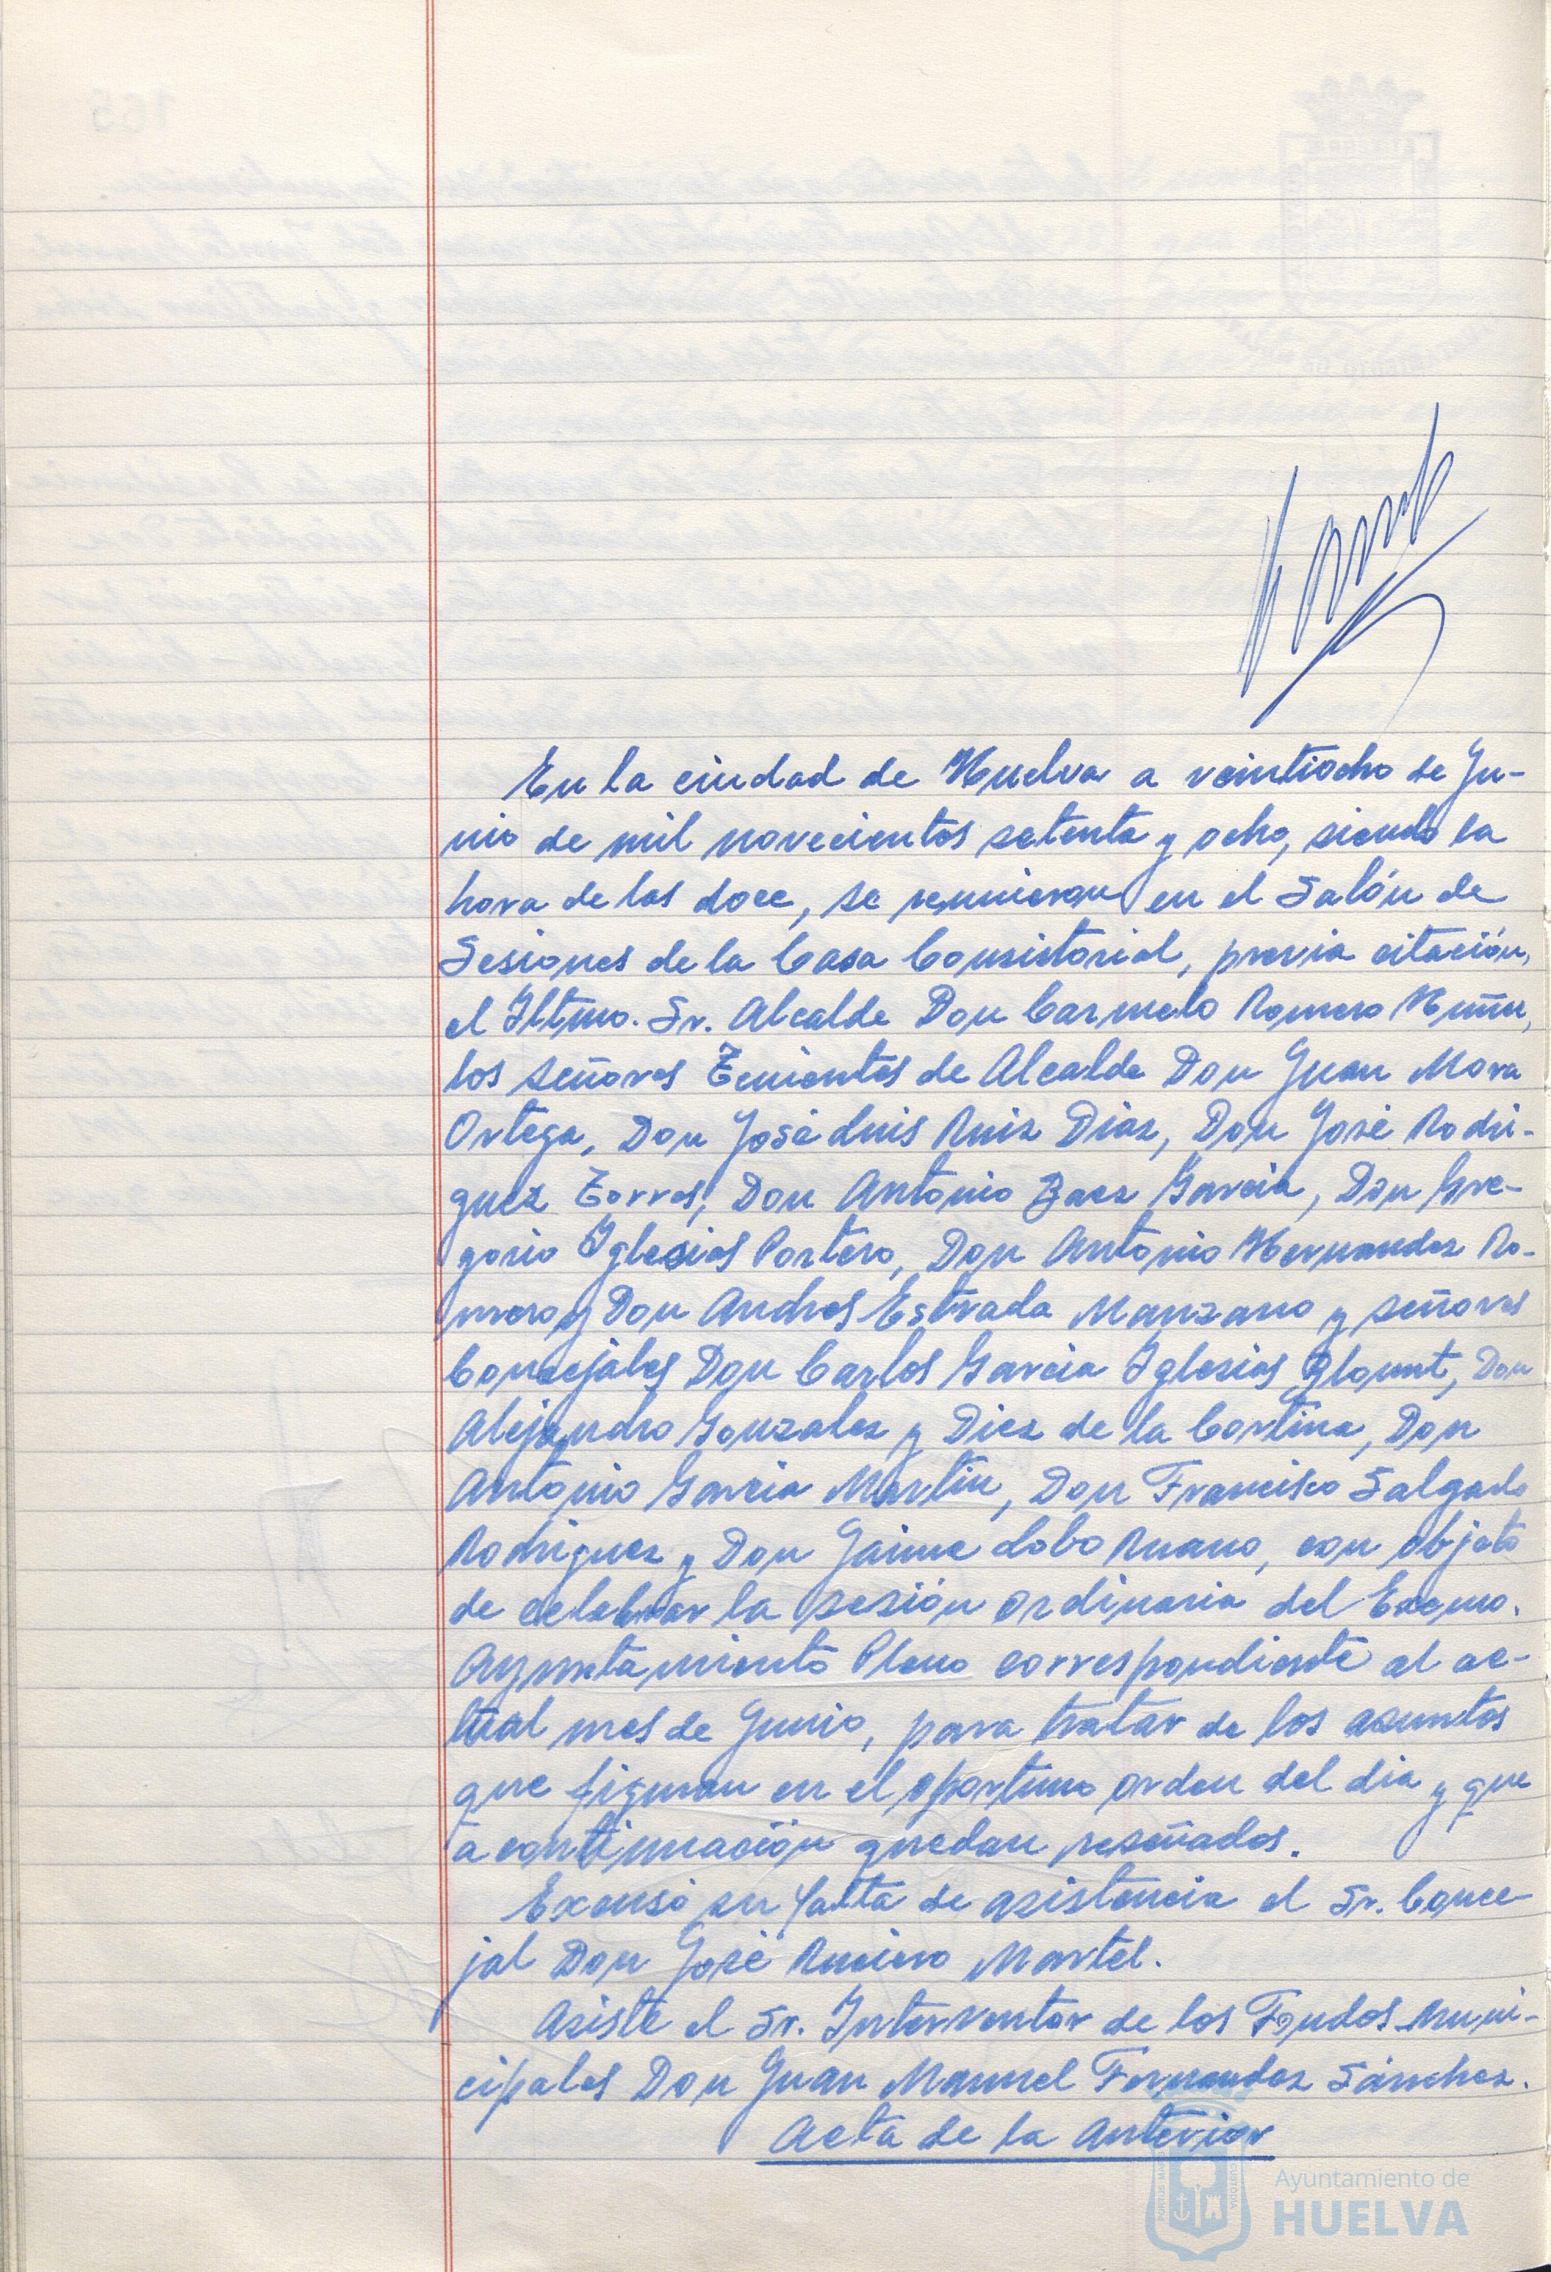 En la ciudad de Huelva a veintiocho de Ju-
nio de mil novecientos setenta y ocho, siendo la
hora de las doce, se reunieron en el Salón de
Sesiones de la Casa Consistorial, previa citación,
el Iltmo. Sr. Alcalde Don Carmelo Romero Núñez,
los señores Tenientes de Alcalde Don Juan Mora
Ortega, Don José Luis Ruiz Diaz, Don José Rodri-
guez Torres, Don Antonio Baez Garcia, Don Gre-
gorio Iglesias Portero, Don Antonio Hernandez Ro-
mero y Don Andres Estrada Manzano y señores
Concejales Don Carlos Garcia Iglesias Blount, Don
Alejandro Gonzalez y Diez de la Cortina, Don
Antonio Garcia Martin, Don Francisco Salgado
Rodriguez y Don Jaime Lobo Ruano, con objeto
de celebrar la sesión ordinaria del Excmo.
Ayuntamiento Pleno correspondiente al ac-
tual mes de Junio, para tratar de los asuntos
que figuran en el oportuno orden del dia y que
a continuación quedan reseñados.
Excusó su falta de asistencia el Sr. Conce-
jal Don José Martel.
Asiste el Sr. Interventor de los Fondos Muni-
cipales Don Juan Manuel Fernandez Sánchez.
Acta de la Anterior
Ayuntamiento de
HUELVA